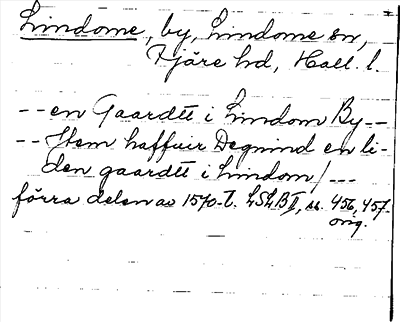 Lindome, by, Lindome sn,
Fjäre hd, Hall. l.
-- en Gaardtt i Lindom By --
-- Item haffuir Degnind en li-
den gaardtt i Lindom / ---
förra delen av 1570-t. LSLB II, s. 456, 457
orig.